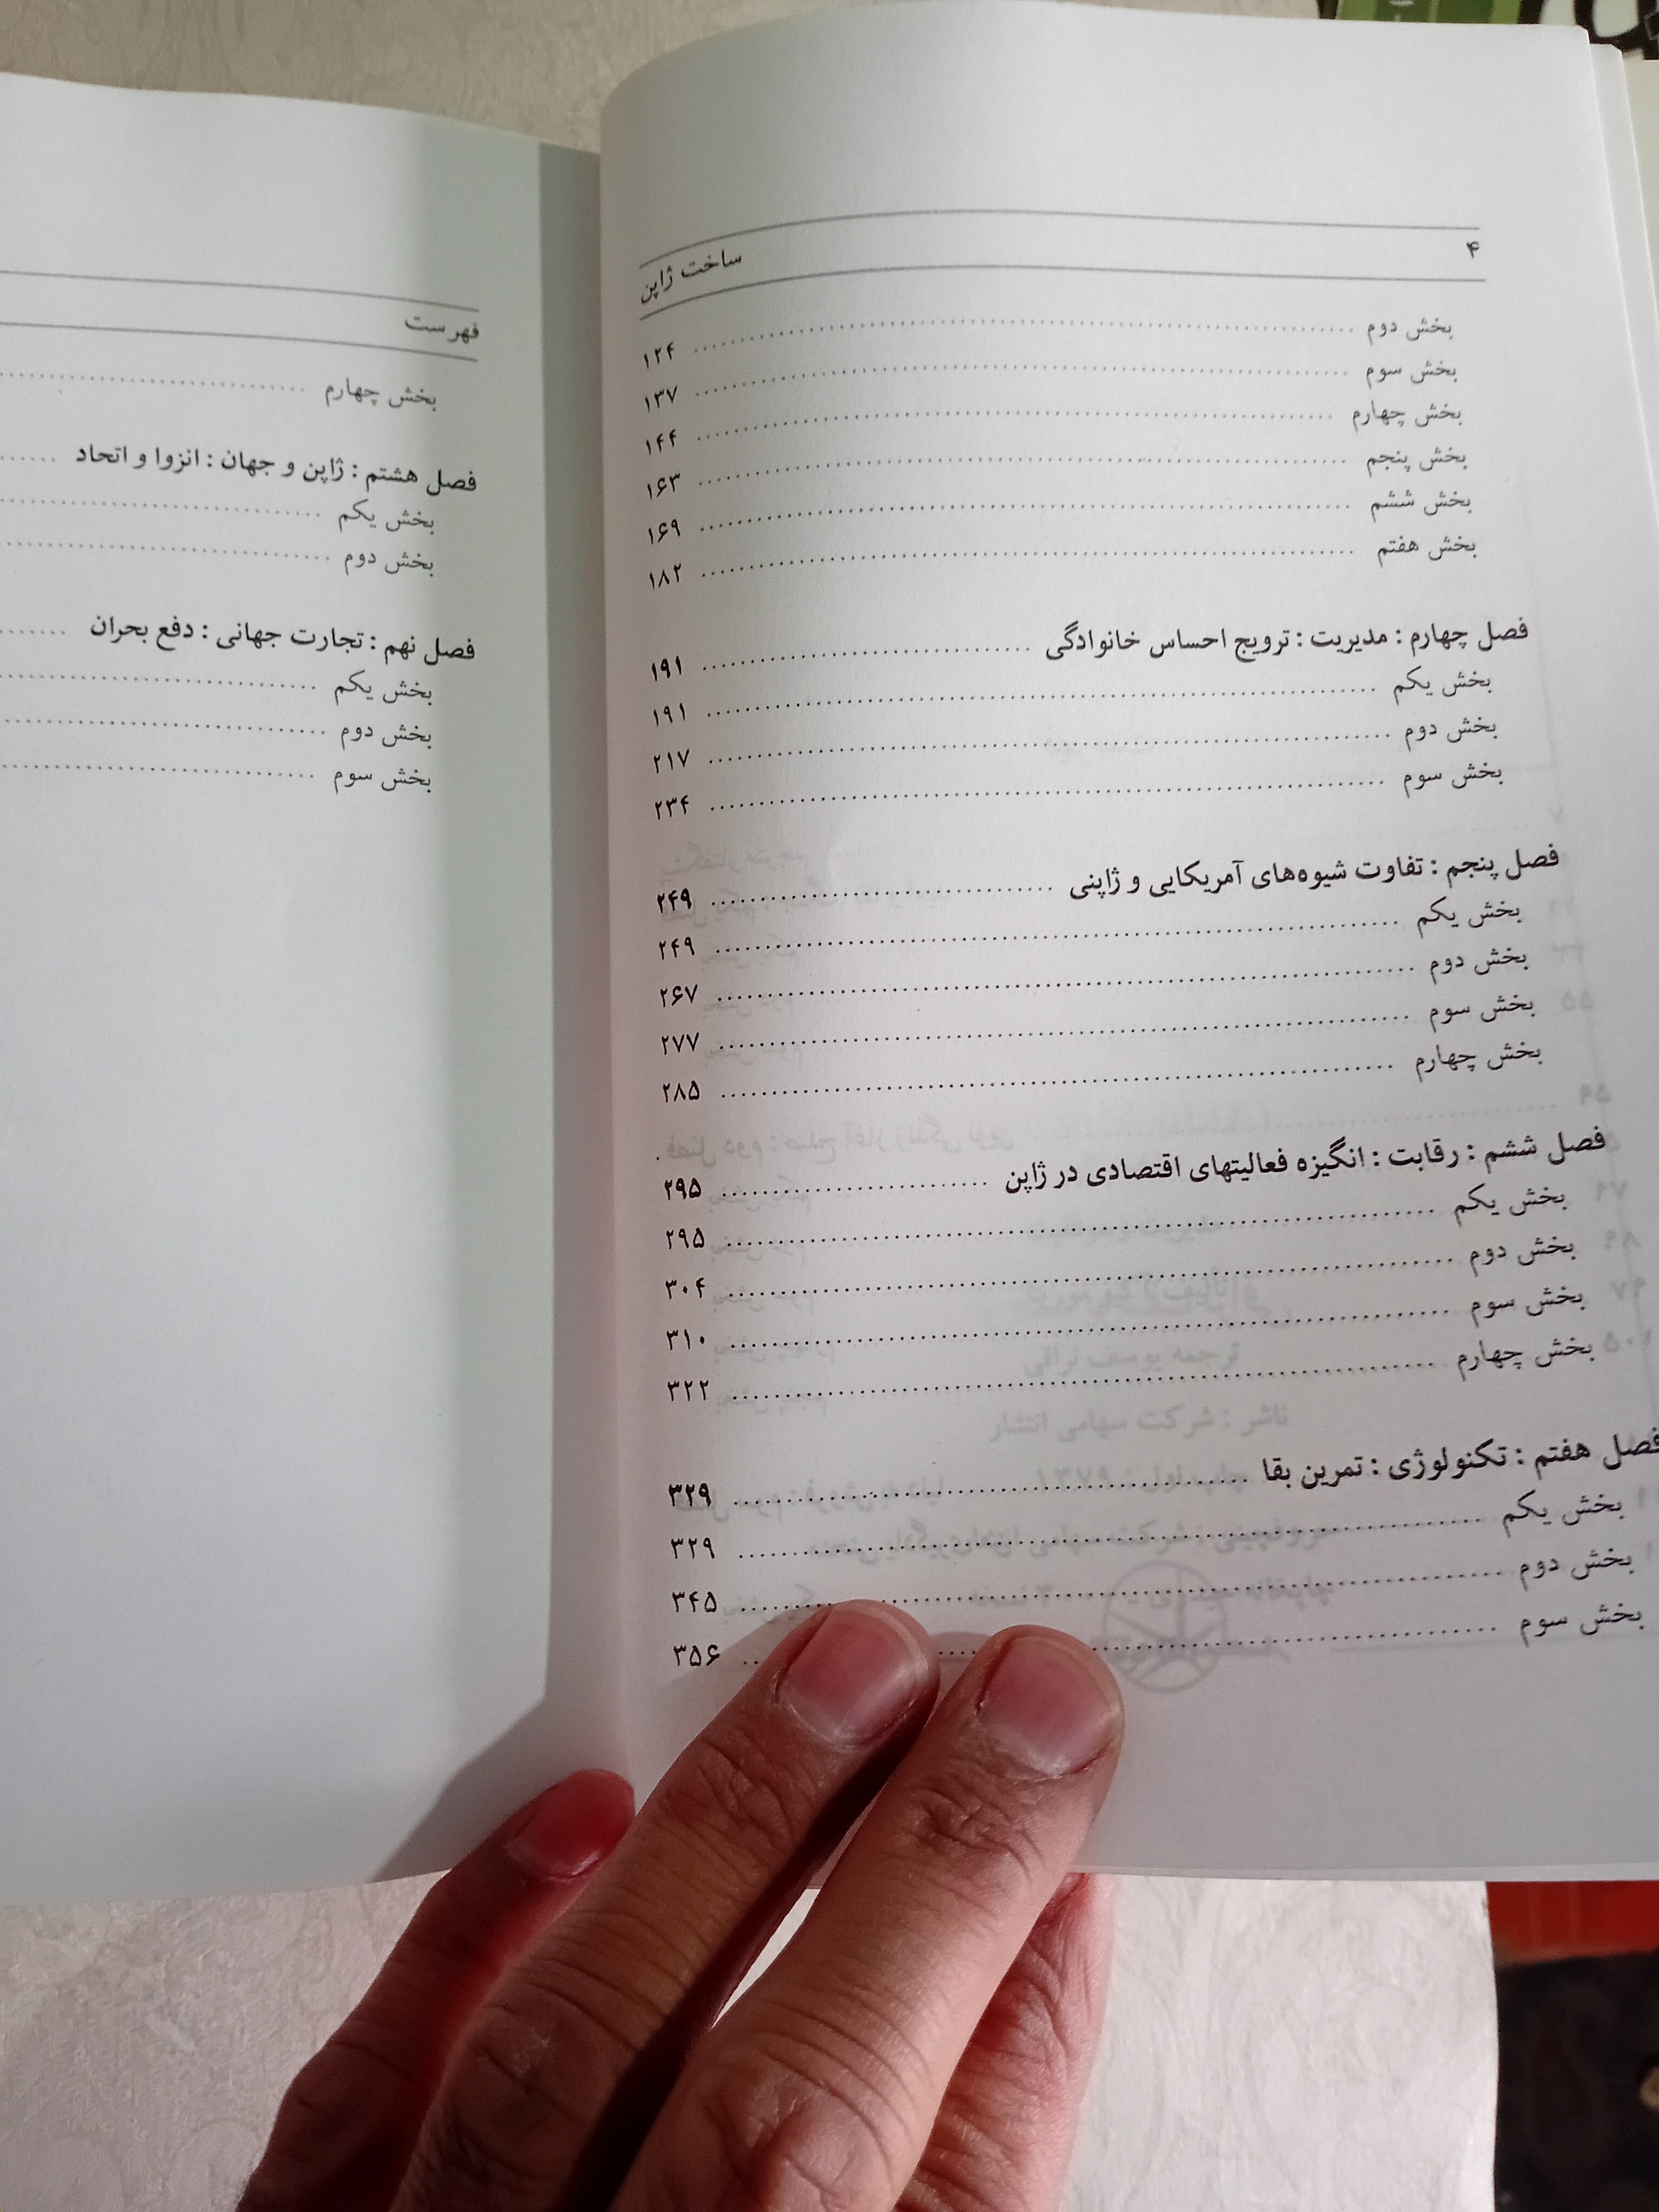 ۴ ساخت ژاپن
بخش دوم ........ ۱۲۴
بخش سوم ........ ۱۳۷
بخش چهارم ........ ۱۴۴
بخش پنجم ........ ۱۶۳
بخش ششم ........ ۱۶۹
بخش هفتم ........ ۱۸۲
فصل چهارم : مدیریت : ترویج احساس خانوادگی ........ ۱۹۱
بخش یکم ........ ۱۹۱
بخش دوم ........ ۲۱۷
بخش سوم ........ ۲۳۴
فصل پنجم : تفاوت شیوه‌های آمریکایی و ژاپنی ........ ۲۴۹
بخش یکم ........ ۲۴۹
بخش دوم ........ ۲۶۷
بخش سوم ........ ۲۷۷
بخش چهارم ........ ۲۸۵
فصل ششم : رقابت : انگیزه فعالیتهای اقتصادی در ژاپن ........ ۲۹۵
بخش یکم ........ ۲۹۵
بخش دوم ........ ۳۰۴
بخش سوم ........ ۳۱۰
بخش چهارم ........ ۳۲۲
فصل هفتم : تکنولوژی : تمرین بقا ........ ۳۲۹
بخش یکم ........ ۳۲۹
بخش دوم ........ ۳۴۵
بخش سوم ........ ۳۵۶
فهرست
بخش چهارم ........
فصل هشتم : ژاپن و جهان : انزوا و اتحاد ........
بخش یکم ........
بخش دوم ........
فصل نهم : تجارت جهانی : دفع بحران ........
بخش یکم ........
بخش دوم ........
بخش سوم ........